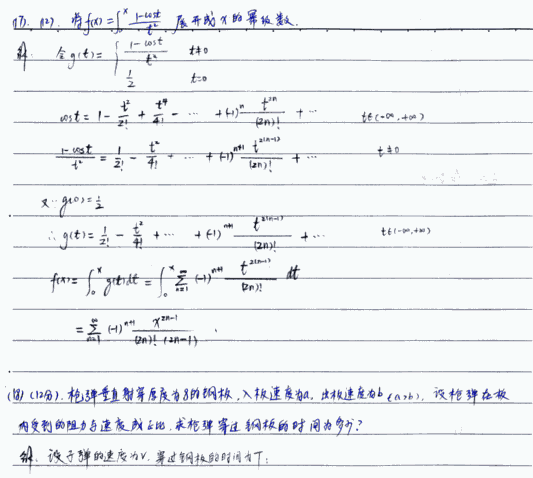 (17). (12). 将f(x)=∫₀ˣ (1-cost)/t² 展开成x的幂级数.
解. 令g(t)= { (1-cost)/t² t≠0
1/2 t=0
cost = 1 - t²/2! + t⁴/4! - ⋯ + (-1)ⁿ t²ⁿ/(2n)! + ⋯ t∈(-∞,+∞)
(1-cost)/t² = 1/2! - t²/4! + ⋯ + (-1)ⁿ⁺¹ t²⁽ⁿ⁻¹⁾/(2n)! + ⋯ t≠0
又∵ g(0)=1/2
∴ g(t)= 1/2! - t²/4! + ⋯ + (-1)ⁿ⁺¹ t²⁽ⁿ⁻¹⁾/(2n)! + ⋯ t∈(-∞,+∞)
f(x)= ∫₀ˣ g(t)dt = ∫₀ˣ ∑ₙ₌₁^∞ (-1)ⁿ⁺¹ t²⁽ⁿ⁻¹⁾/(2n)! dt
= ∑ₙ₌₁^∞ (-1)ⁿ⁺¹ x²ⁿ⁻¹/((2n)!(2n-1)) .
(18) (12分). 枪弹垂直射穿厚度为δ的钢板, 入板速度为a, 出板速度为b (a>b), 设枪弹在板
内受到的阻力与速度成正比, 求枪弹穿过钢板的时间为多少?
解. 设子弹的速度为V, 穿过钢板的时间为T;